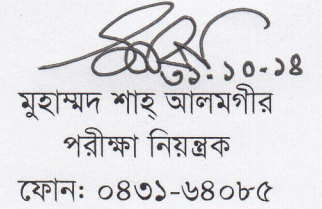 ৩১.১০-১৪
মুহাম্মদ শাহ্ আলমগীর
পরীক্ষা নিয়ন্ত্রক
ফোন: ০৪৩১-৬৪০৮৫